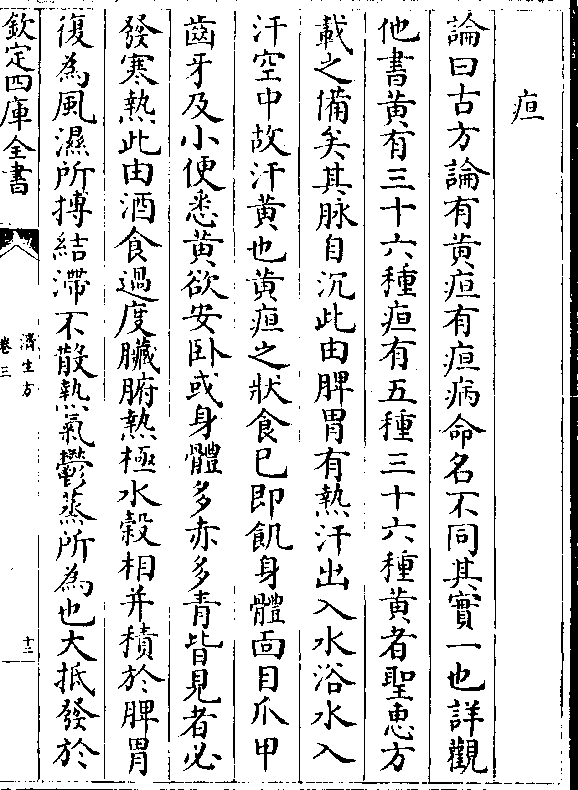 疸
論曰古方論有黄疸有疸病命名不同其實一也詳觀
他書黄有三十六種疸有五種三十六種黄者聖恵方
載之備矣其脉自沉此由脾胃有熱汗出入水浴水入
汗空中故汗黄也黄疸之狀食已即飢身體面目爪甲
齒牙及小便悉黄欲安卧或身體多赤多青皆見者必
發寒熱此由酒食過度臟腑熱極水榖相并積於脾胃
復為風濕所搏結滯不散熱氣鬱蒸所為也大抵發於
欽定四庫全書
濟生方
卷三
十二